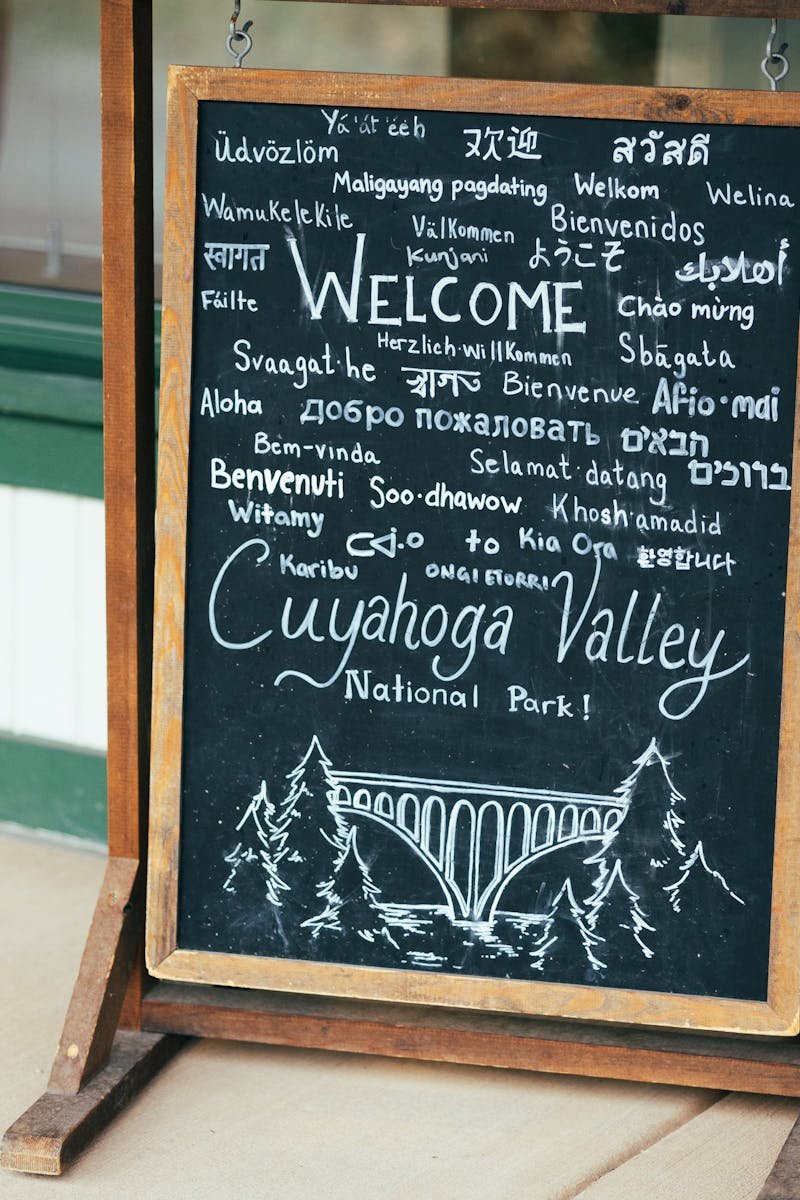 Yá'át'ééh
欢迎
สวัสดี
Üdvözlöm
Maligayang pagdating
Welkom
Welina
Wamukelekile
Välkommen
Bienvenidos
स्वागत
Kunjani
ようこそ
أهلا بك
Fáilte
WELCOME
Chào mừng
Herzlich·willkommen
Sbāgata
Svaagat·he
স্বাগত
Bienvenue
Afio·mai
Aloha
Добро пожаловать
הבאים
ברוכים
Bem-vinda
Selamat·datang
Benvenuti
Soo·dhawow
Khosh·amadid
Witamy
to
Kia Ora
환영합니다
Karibu
ONGI ETORRI
Cuyahoga Valley
National Park!